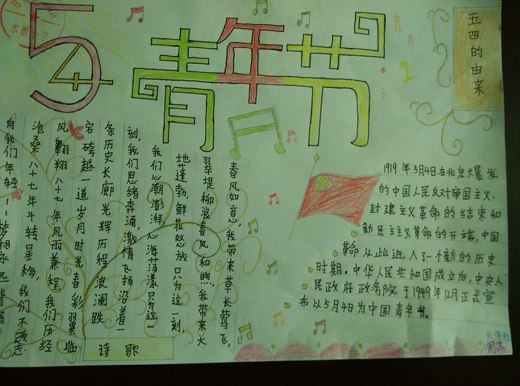 54
青年节
五四的由来
1919年5月4日在北京大爆发
的中国人民反对帝国主义、
封建主义革命的结束和
新民主主义革命的开端,中国
革命从此进入了一个新的历史
时期。中华人民共和国成立后,中央人
民政府政务院于1949年12月正式宣
布以5月4日为中国青年节。
春风如意,我带来草长莺飞,
翠堤柳浪春风和煦,我带来大
地蓬勃,鲜花怒放,只为这一刻,
我们心潮澎湃,心海荡漾,只为这一
刻,我们思绪奔涌,激情飞扬,沿着一
条历史长廊,光辉历程,波澜跌
宕,跨越一道岁月时光,春彩翼临
风,翱翔八十七年风雨兼程,我们历经
沧桑,八十七年斗转星移,我们不改志
向,我们年轻
诗歌